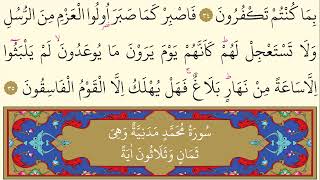 بِمَا كُنْتُمْ تَكْفُرُونَ ﴿٣٤﴾ فَاصْبِرْ كَمَا صَبَرَ اُولُوا الْعَزْمِ مِنَ الرُّسُلِ
وَلَا تَسْتَعْجِلْ لَهُمْ كَاَنَّهُمْ يَوْمَ يَرَوْنَ مَا يُوعَدُونَ لَمْ يَلْبَثُوا
اِلَّا سَاعَةً مِنْ نَهَارٍ بَلَاغٌ فَهَلْ يُهْلَكُ اِلَّا الْقَوْمُ الْفَاسِقُونَ ﴿٣٥﴾
سُورَةُ مُحَمَّدٍ مَدَنِيَّةٌ وَهِيَ
ثَمَانٍ وَثَلَاثُونَ اٰيَةً